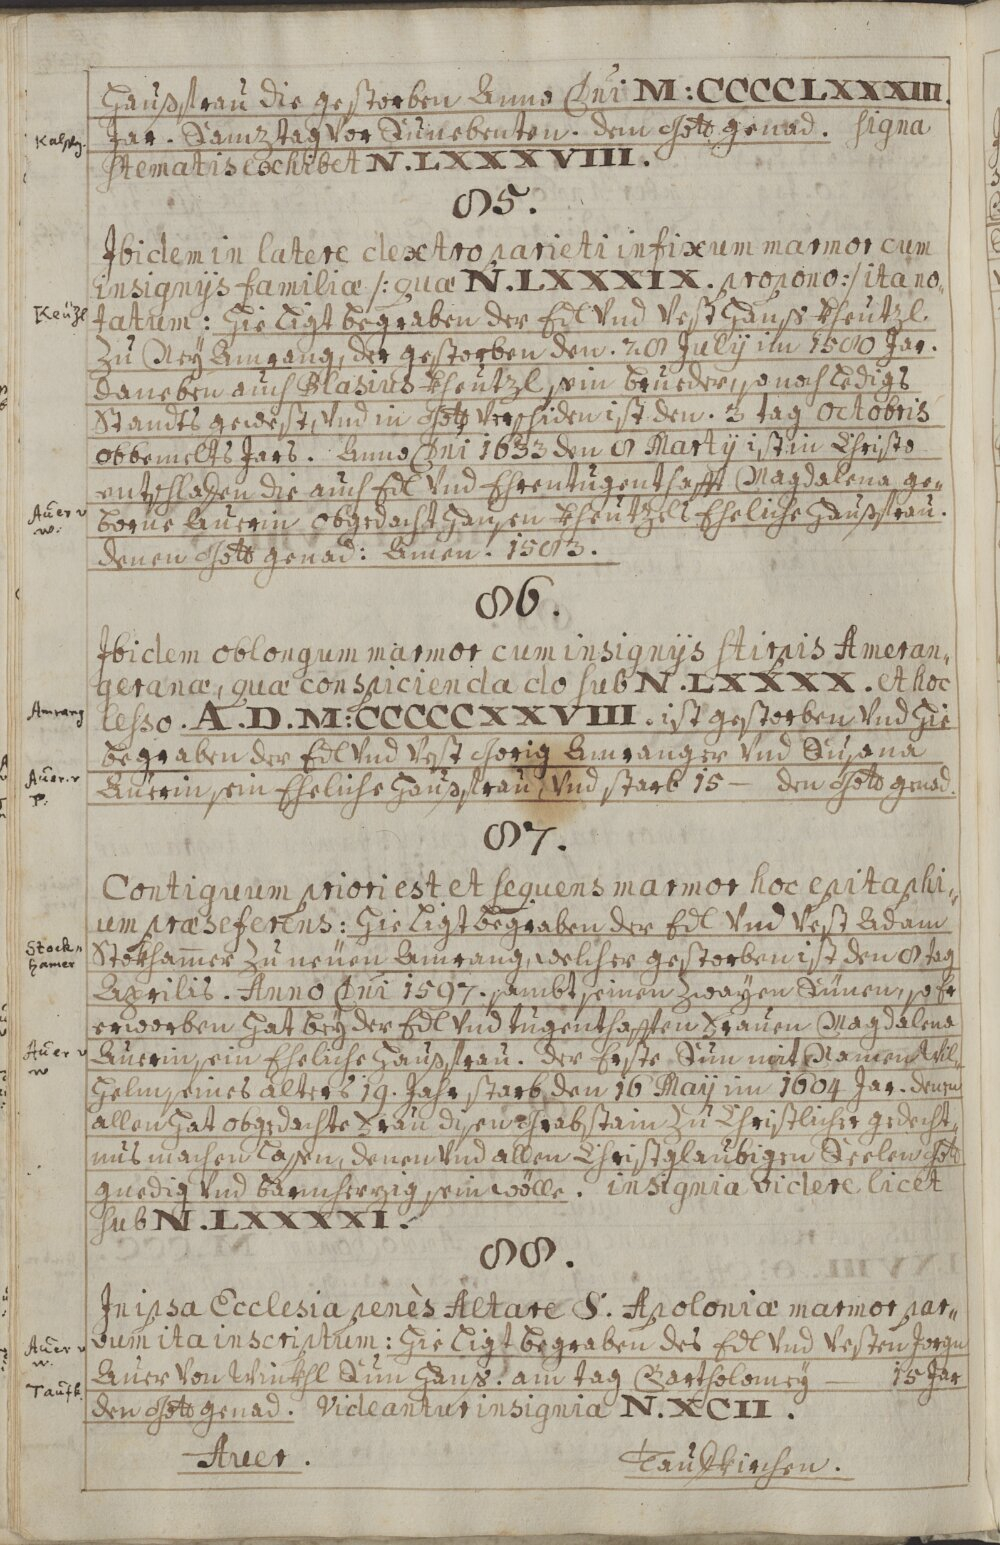 Haußfrau die gestorben Anno Dni M:CCCCLXXXIII.
Kalsprg. Jar. Samztag Vor Sunebenten. dem Gott genad. Signa
Stematis exhibet N.LXXXVIII.
85.
Ibidem in latere dextro parieti infixum marmor cum
insignijs familiæ /: quæ N.LXXXIX. propono:/ ita no„
Keüzl tatum: Hie Ligt begraben der Edl Vnd Vest Hanß Kheutzl.
Zu Neÿ Amrang, der gestorben den. 28 Julÿ im 1580 Jar.
daneben auch Blasius Kheutzl sein brueder, so noch Ledigs
Standts gewest, Vnd in Gott Verschiden ist den. 3 tag Octobris
obbemelts Jars. Anno Dni 1633 den 8 Martÿ ist in Christo
entschlaffen die auch Edl Vnd Ehrentugenthafft Magdalena ge„
Auer v w: borne Auerin obgedacht Hansen Kheutzels Eheliche Haußfrau.
denen Gott genad: Amen. 1583.
86.
Ibidem oblongum marmor cum insignijs stirpis Ameran„
geranæ, quæ conspicienda do sub N.LXXXX. et hoc
Amrang lesso. A.D.M:CCCCCXXVIII. ist gestorben Vnd Hie
begraben der Edl Vnd Vest Jorig Amranger Vnd Susana
Auer. v P. Auerin sein Eheliche Haußfrau Vnd starb 15 — den Gott genad.
87.
Contiguum priori est et sequens marmor hoc epitaphi„
um præseferens: Hie Ligt begraben der Edl Vnd Vest Adam
Stock„ hamer Stokham̄er Zu neuen Amrang, welcher gestorben ist den 8 tag
Aprilis. Anno Dni 1597. sambt seinen Zwayen Sünen, so Er
erworben Hat beÿ der Edl Vnd tugenthafften Frauen Magdalena
Auer v w Auerin sein Eheliche Haußfrau. der Erste Sun mit Namen Wil„
Helm seines alters 19. Jahr starb den 16 Maÿ im 1604 Jar. denen
allen Hat obgedachte Frau disen Grabstain Zu Christlicher gedecht„
nus machen Lassen, denen Vnd allen Christglaubigen Seelen Gott
gnedig Vnd barmherzig sein wölle. insignia videre licet
sub N.LXXXXI.
88.
In ipsa Ecclesia penès Altare S. Apoloniæ marmor par„
Auer v w. vum ita inscriptum: Hie Ligt begraben des Edl Vnd Vesten Jorgn
Taufk. Auer Von Winkhl Sun Hanß. am tag Bartholomeÿ — 15 Jar
den Gott genad. Videantur insignia N.XCII.
Auer. Taufkirchen.